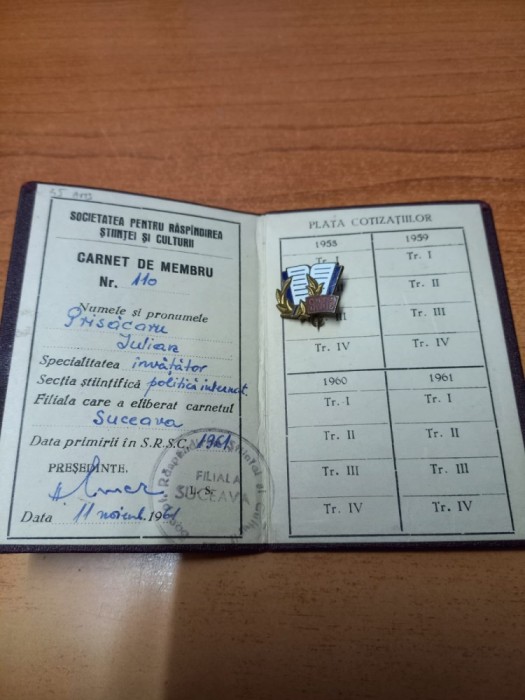 SOCIETATEA PENTRU RĂSPÎNDIREA
ȘTIINȚEI ȘI CULTURII
CARNET DE MEMBRU
Nr. 110
Numele și pronumele
Prisăcaru
Iulian
Specialitatea învățător
Secția științifică politică internaț.
Filiala care a eliberat carnetul
Suceava
Data primirii in S.R.S.C. 1961
PREȘEDINTE,
L. S.
Data 11 noiemb. 1961
FILIALA
SUCEAVA
PLATA COTIZAȚIILOR
1958 1959
Tr. I Tr. I
Tr. II
Tr. III
Tr. IV Tr. IV
1960 1961
Tr. I Tr. I
Tr. II Tr. II
Tr. III Tr. III
Tr. IV Tr. IV